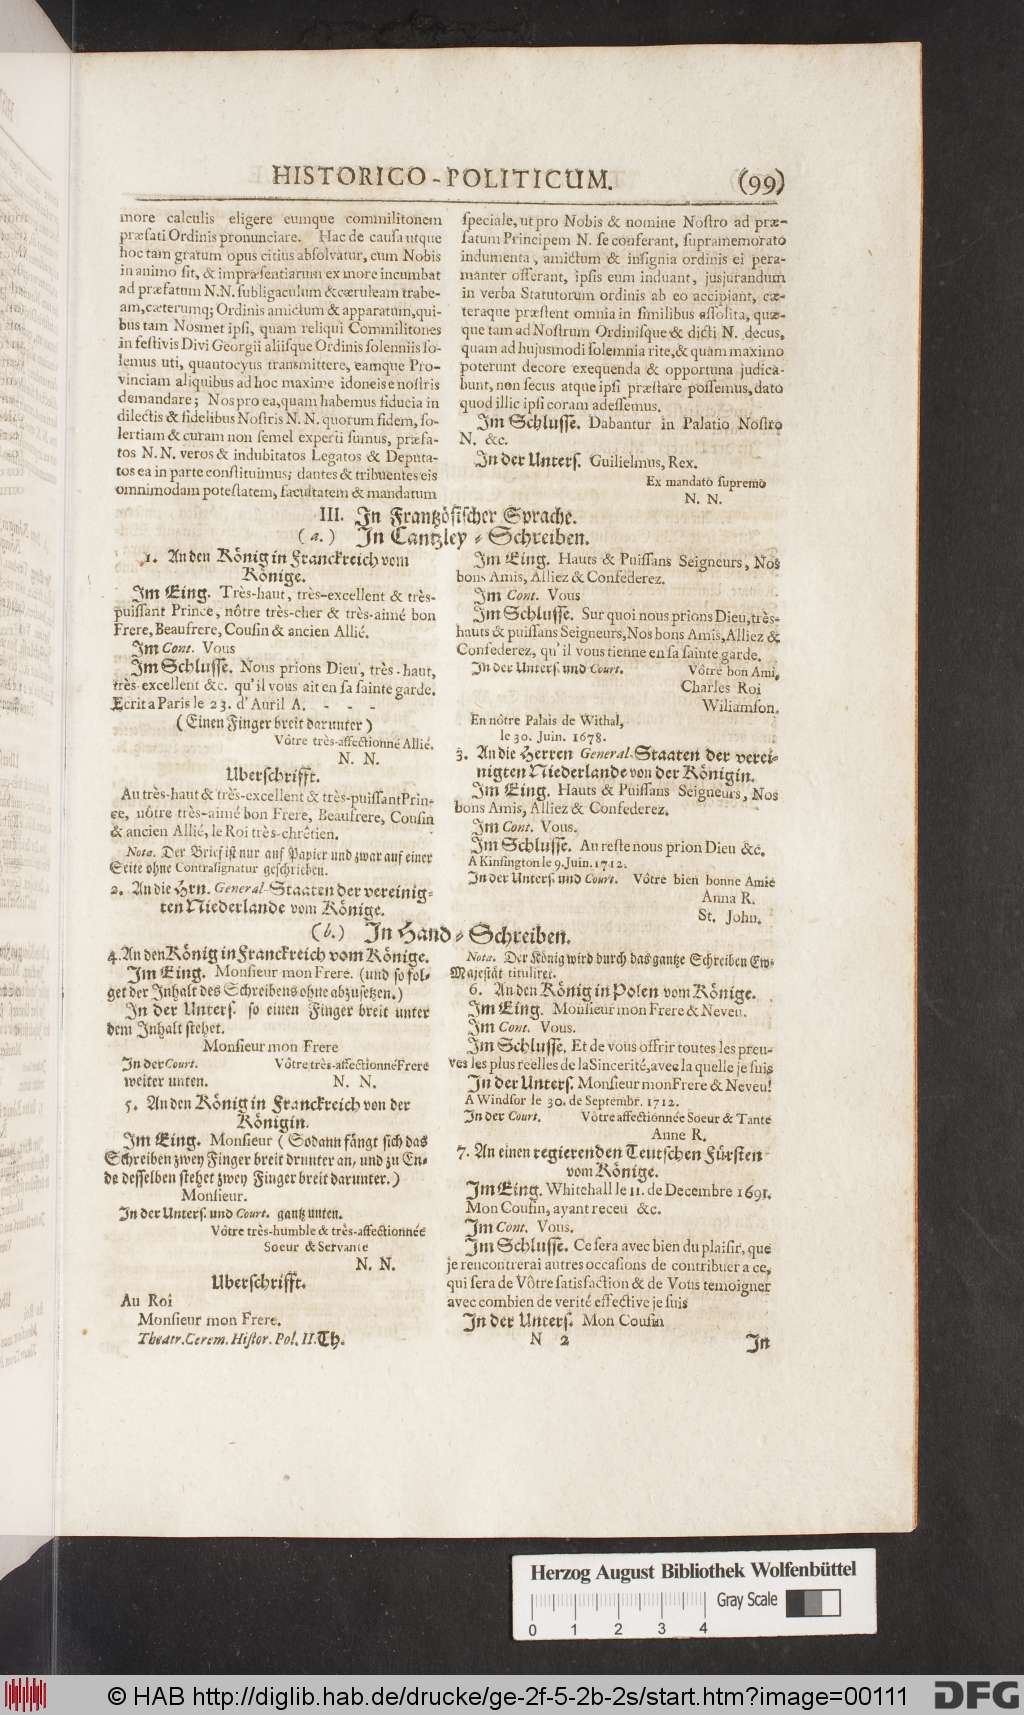 HISTORICO-POLITICUM. (99)
more calculis eligere eumque commilitonem
præfati Ordinis pronunciare. Hac de causa utque
hoc tam gratum opus citius absolvatur, cum Nobis
in animo sit, & impræsentiarum ex more incumbat
ad præfatum N.N. subligaculum & cæruleam trabe-
am, cæterumq; Ordinis amictum & apparatum, qui-
bus tam Nosmet ipsi, quam reliqui Commilitones
in festivis Divi Georgii aliisque Ordinis solenniis so-
lemus uti, quantocyus transmittere, eamque Pro-
vinciam aliquibus ad hoc maxime idoneis e nostris
demandare; Nos pro ea, quam habemus fiducia in
dilectis & fidelibus Nostris N. N. quorum fidem, so-
lertiam & curam non semel experti sumus, præfa-
tos N. N. veros & indubitatos Legatos & Deputa-
tos ea in parte constituimus; dantes & tribuentes eis
omnimodam potestatem, facultatem & mandatum
speciale, ut pro Nobis & nomine Nostro ad præ-
fatum Principem N. se conferant, supramemorato
indumenta, amictum & insignia ordinis ei pera-
manter offerant, ipsis eum induant, jusjurandum
in verba Statutorum ordinis ab eo accipiant, cæ-
teraque præstent omnia in similibus assolita, quæ-
que tam ad Nostrum Ordinisque & dicti N. decus,
quam ad hujusmodi solemnia rite, & quam maximo
poterunt decore exequenda & opportuna judica-
bunt, non secus atque ipsi præstare possemus, dato
quod illic ipsi coram adessemus.
Im Schlusse. Dabantur in Palatio Nostro
N. &c.
In der Unters. Guilielmus, Rex.
Ex mandato supremo
N. N.
III. In Frantzösischer Sprache.
(a.) In Cantzley-Schreiben.
1. An den König in Franckreich vom
Könige.
Im Eing. Très-haut, très-excellent & très-
puissant Prince, nôtre très-cher & très-aimé bon
Frere, Beaufrere, Cousin & ancien Allié.
Im Cont. Vous
Im Schlusse. Nous prions Dieu, très-haut,
très-excellent &c. qu'il vous ait en sa sainte garde.
Ecrit a Paris le 23. d'Auril A. - - -
(Einen Finger breit darunter)
Vôtre très-affectionné Allié.
N. N.
Uberschrifft.
Au très-haut & très-excellent & très-puissant Prin-
ce, nôtre très-aimé bon Frere, Beaufrere, Cousin
& ancien Allié, le Roi très-chrêtien.
Nota. Der Brief ist nur auf Papier und zwar auf einer
Seite ohne Contrasignatur geschrieben.
2. An die Hrn. General-Staaten der vereinig-
ten Niederlande vom Könige.
Im Eing. Hauts & Puissans Seigneurs, Nos
bons Amis, Alliez & Confederez.
Im Cont. Vous
Im Schlusse. Sur quoi nous prions Dieu, très-
hauts & puissans Seigneurs, Nos bons Amis, Alliez &
Confederez, qu'il vous tienne en sa sainte garde.
In der Unters. und Court. Vôtre bon Ami,
Charles Roi
Wiliamson.
En nôtre Palais de Withal,
le 30. Juin. 1678.
3. An die Herren General-Staaten der verei-
nigten Niederlande von der Königin.
Im Eing. Hauts & Puissans Seigneurs, Nos
bons Amis, Alliez & Confederez.
Im Cont. Vous.
Im Schlusse. Au reste nous prion Dieu &c.
A Kinsington le 9. Juin. 1712.
In der Unters. und Court. Vôtre bien bonne Amie
Anna R.
St. John.
(b.) In Hand-Schreiben.
4. An den König in Franckreich vom Könige.
Im Eing. Monsieur mon Frere. (und so fol-
get der Inhalt des Schreibens ohne abzusetzen.)
In der Unters. so einen Finger breit unter
dem Inhalt stehet.
Monsieur mon Frere
In der Court. Vôtre très-affectionné Frere
weiter unten. N. N.
5. An den König in Franckreich von der
Königin.
Im Eing. Monsieur (Sodann fängt sich das
Schreiben zwey Finger breit drunter an, und zu En-
de desselben stehet zwey Finger breit darunter.)
Monsieur.
In der Unters. und Court. gantz unten.
Vôtre très-humble & très-affectionnée
Soeur & Servante
N. N.
Uberschrifft.
Au Roi
Monsieur mon Frere.
Theatr. Cerem. Histor. Pol. II. Th.
Nota. Der König wird durch das gantze Schreiben Ew.
Majestät titulirei.
6. An den König in Polen vom Könige.
Im Eing. Monsieur mon Frere & Neveu.
Im Cont. Vous.
Im Schlusse. Et de vous offrir toutes les preu-
ves les plus reelles de la Sincerité, avec la quelle je suis
In der Unters. Monsieur mon Frere & Neveu!
A Windsor le 30. de Septembr. 1712.
In der Court. Vôtre affectionnée Soeur & Tante
Anne R.
7. An einen regierenden Teutschen Fürsten
vom Könige.
Im Eing. Whitehall le 11. de Decembre 1691.
Mon Cousin, ayant receu &c.
Im Cont. Vous.
Im Schlusse. Ce sera avec bien du plaisir, que
je rencontrerai autres occasions de contribuer a ce,
qui sera de Vôtre satisfaction & de Vous temoigner
avec combien de verité effective je suis
In der Unters. Mon Cousin
N 2 In
Herzog August Bibliothek Wolfenbüttel
Gray Scale
0 1 2 3 4
© HAB http://diglib.hab.de/drucke/ge-2f-5-2b-2s/start.htm?image=00111
DFG